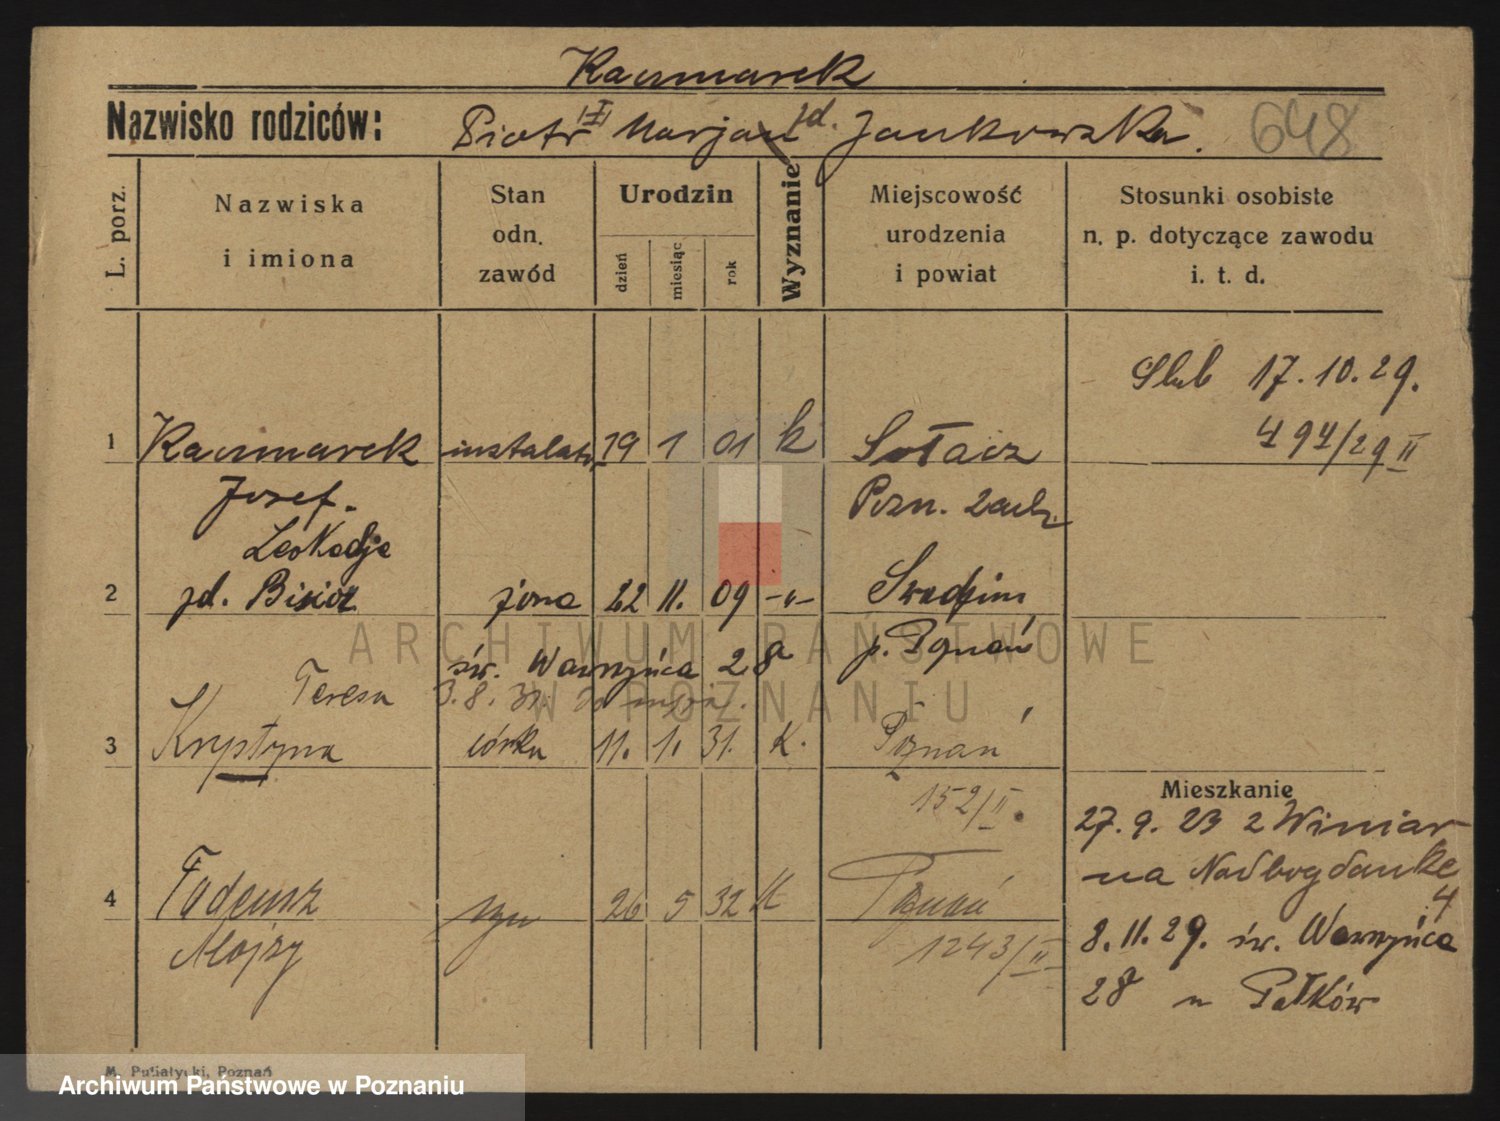 Kaczmarek
Nazwisko rodziców: Piotr Marjan zd. Jankowska. 648
L. porz.
Nazwiska i imiona
Stan odn. zawód
Urodzin
dzień miesiąc rok
Wyznanie
Miejscowość urodzenia i powiat
Stosunki osobiste n. p. dotyczące zawodu i. t. d.
Slub 17. 10. 29.
497/29 II
1 Kaczmarek instalator 19 1 01 k Sołacz
Josef. Pozn. zach.
Leokadje
2 zd. Bisior żona 22 11. 09 -"- Swadzim
p. Poznań
św. Wawrzyńca 28
Teresa 3. 8. 31.
3 Krystyna córka 11. 1. 31. K. Poznań
152/II.
Mieszkanie
27. 9. 23 z Winiar
na Nadbogdanke
4
4 Tadeusz syn 26 5 32 K Poznań
Alojzy 1243/II
8. 11. 29. św. Wawrzyńca
28 u Pałków
M. Putiatycki, Poznań
ARCHIWUM PAŃSTWOWE
W POZNANIU
Archiwum Państwowe w Poznaniu